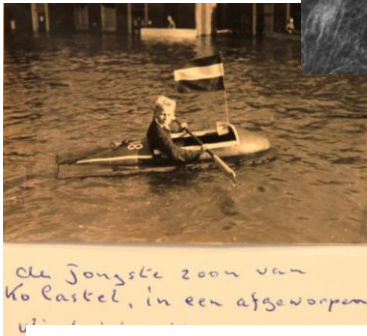 8
de Jongste zoon van
Ko Castel, in een afgeworpen